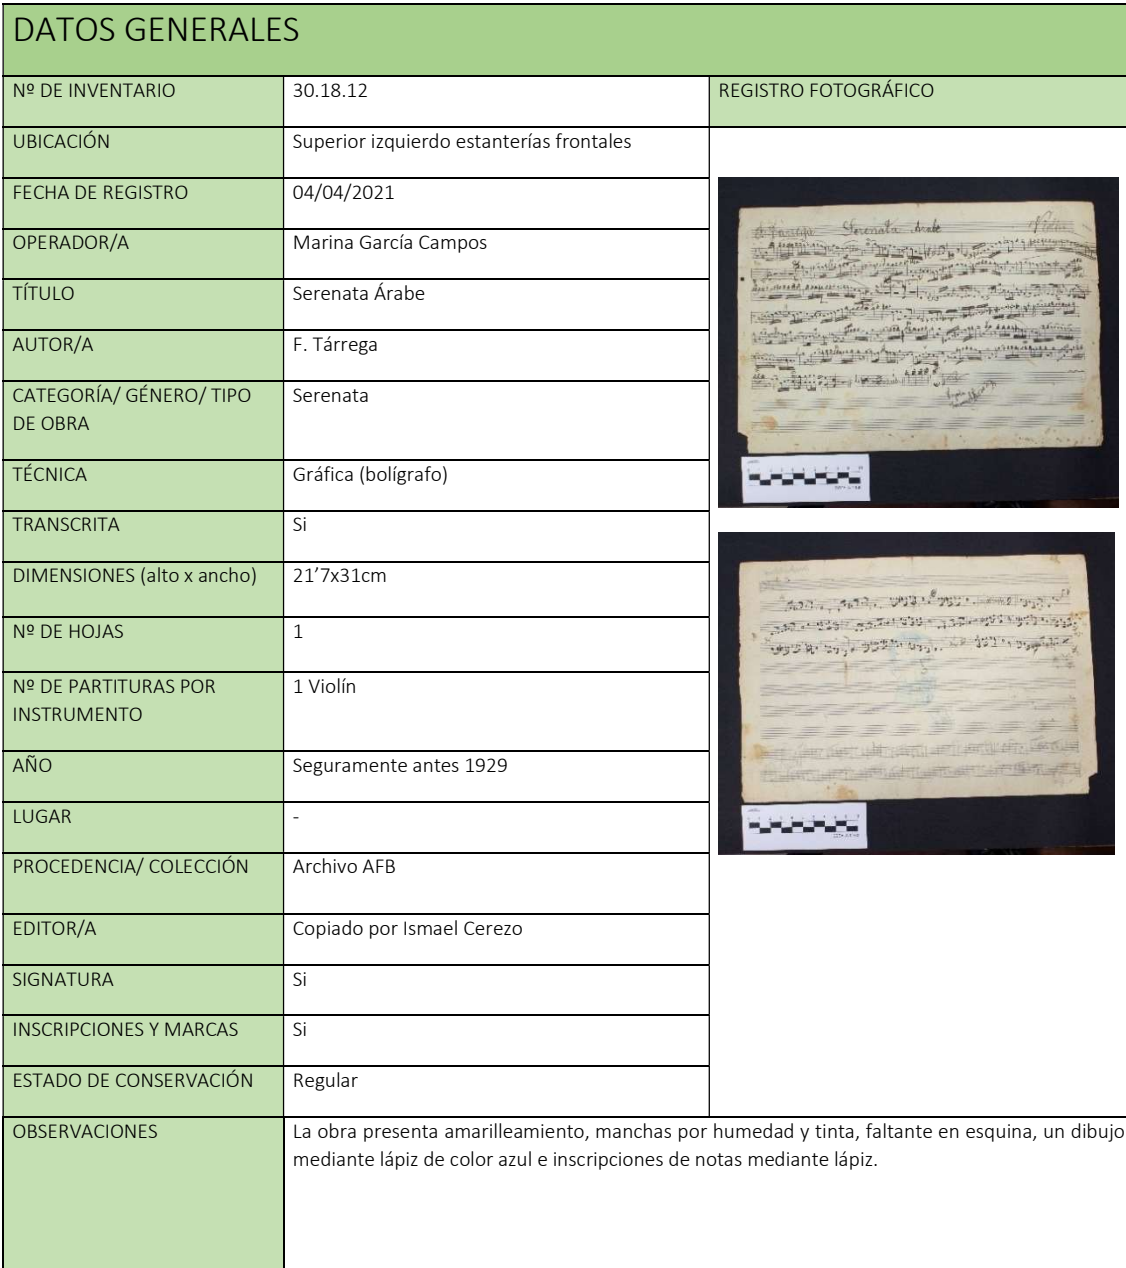 DATOS GENERALES
Nº DE INVENTARIO
30.18.12
REGISTRO FOTOGRÁFICO
UBICACIÓN
Superior izquierdo estanterías frontales
FECHA DE REGISTRO
04/04/2021
OPERADOR/A
Marina García Campos
TÍTULO
Serenata Árabe
AUTOR/A
F. Tárrega
CATEGORÍA/ GÉNERO/ TIPO
DE OBRA
Serenata
TÉCNICA
Gráfica (bolígrafo)
TRANSCRITA
Si
DIMENSIONES (alto x ancho)
21’7x31cm
Nº DE HOJAS
1
Nº DE PARTITURAS POR
INSTRUMENTO
1 Violín
AÑO
Seguramente antes 1929
LUGAR
-
PROCEDENCIA/ COLECCIÓN
Archivo AFB
EDITOR/A
Copiado por Ismael Cerezo
SIGNATURA
Si
INSCRIPCIONES Y MARCAS
Si
ESTADO DE CONSERVACIÓN
Regular
OBSERVACIONES
La obra presenta amarilleamiento, manchas por humedad y tinta, faltante en esquina, un dibujo
mediante lápiz de color azul e inscripciones de notas mediante lápiz.
Serenata Arabe